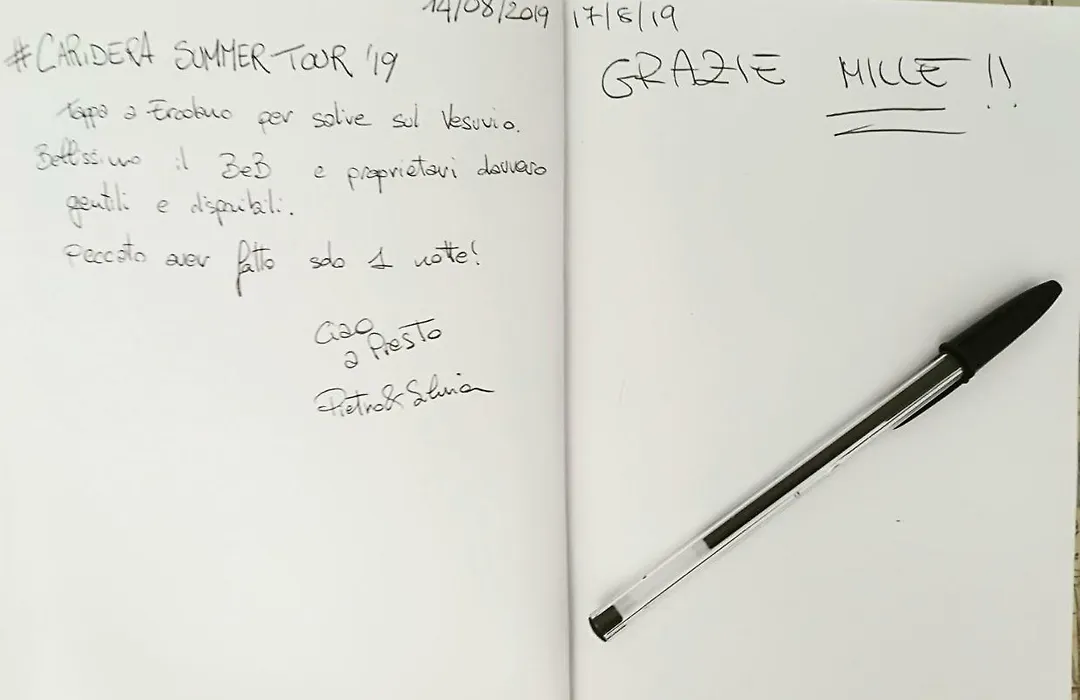 14/08/2019
#CARIDERA SUMMER TOUR '19
Tappa a Ercolano per salire sul Vesuvio.
Bellissimo il BeB e proprietari davvero
gentili e disponibili.
Peccato aver fatto solo 1 notte!
Ciao
a Presto
Pietro & Silvia
17/8/19
GRAZIE MILLE !!